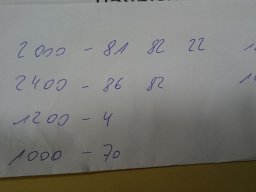 2000 - 81 82 22
2400 - 86 82
1200 - 4
1000 - 70